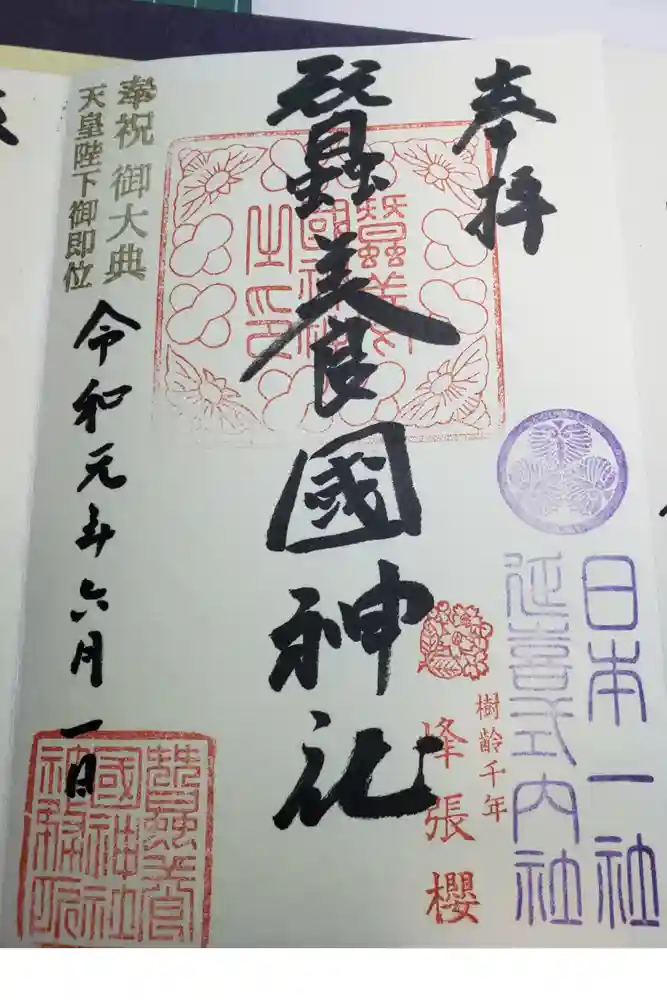 奉拝
日本一社
延喜式内社
樹齢千年
峰張櫻
蠶養國神社
蠶養國神社之印
奉祝 御大典
天皇陛下御即位
令和元年六月一日